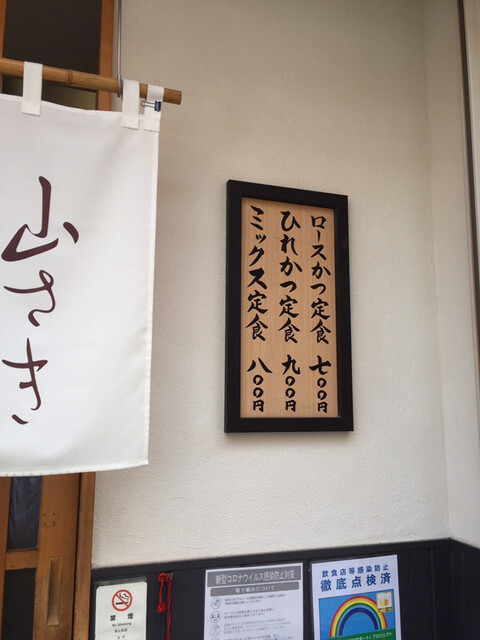 山さき
ロースかつ定食 七〇〇円
ひれかつ定食 九〇〇円
ミックス定食 八〇〇円
禁煙
No Smoking
新型コロナウイルス感染防止対策
取り組みについて
飲食店等感染防止
徹底点検済